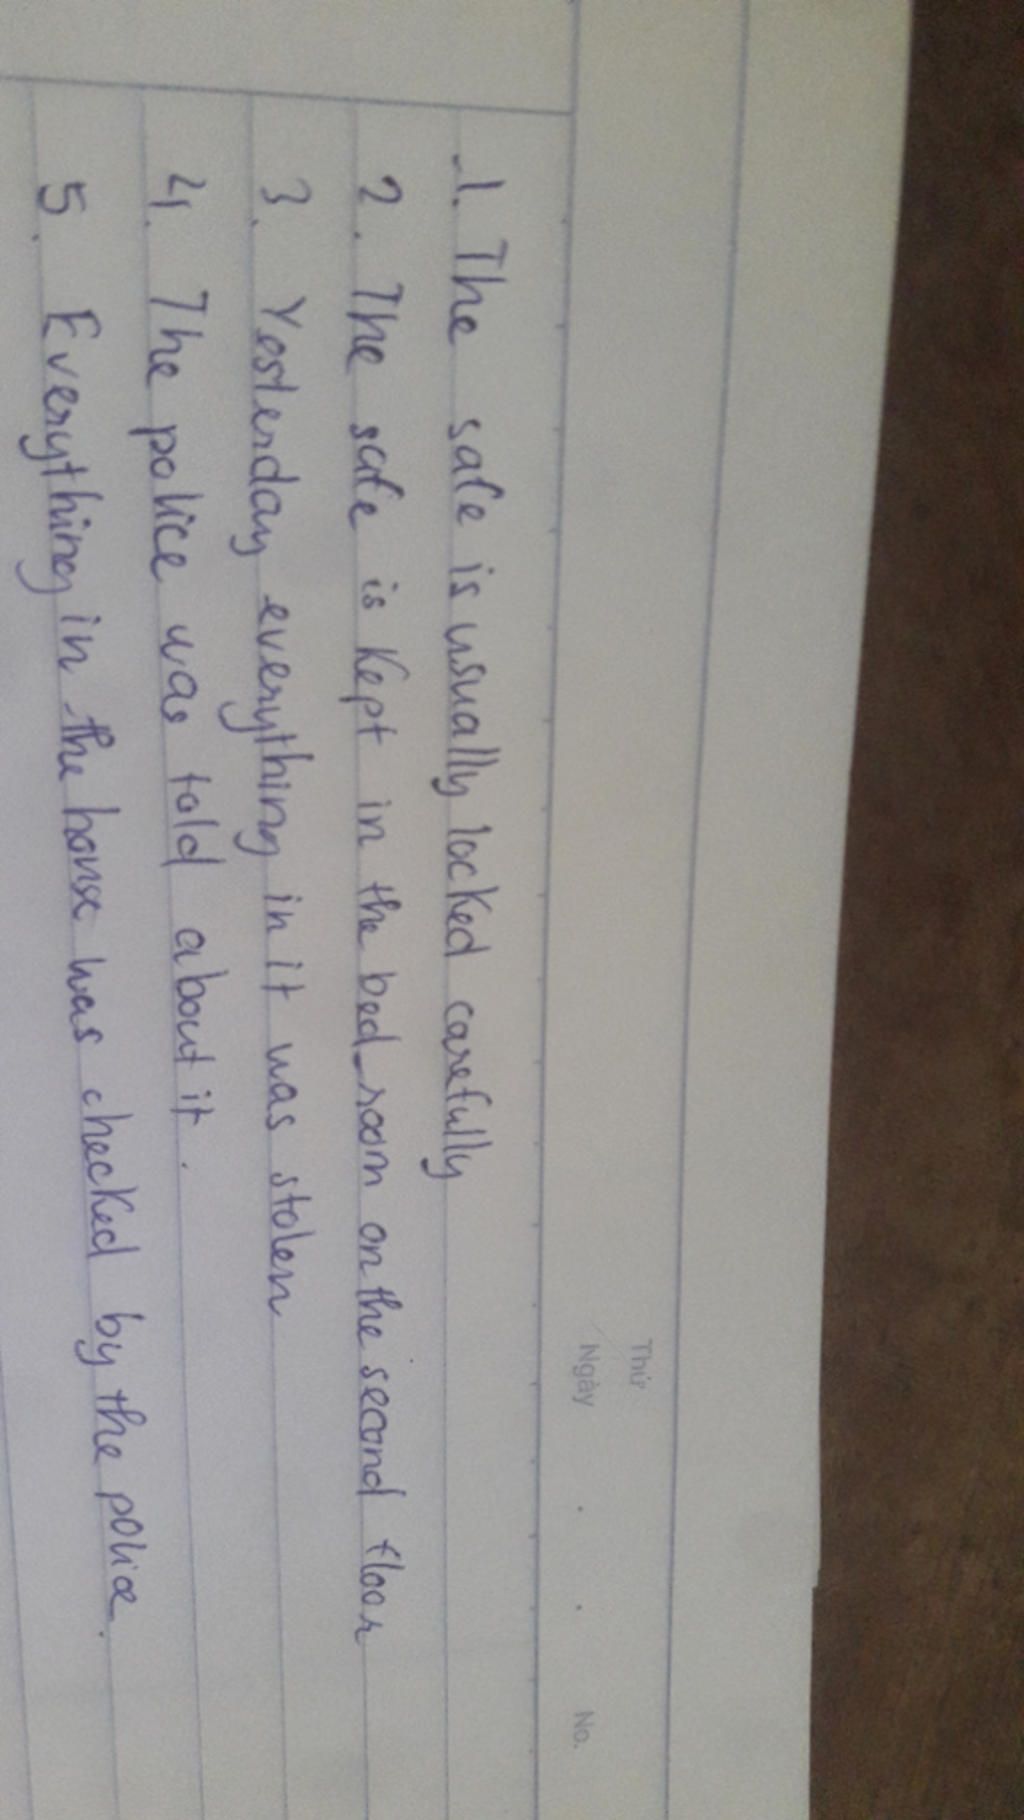 Thứ
Ngày . . No.
1. The safe is usually locked carefully
2. The safe is kept in the bed-room on the second floor
3. Yesterday everything in it was stolen
4. The police was told about it.
5. Everything in the house was checked by the police.